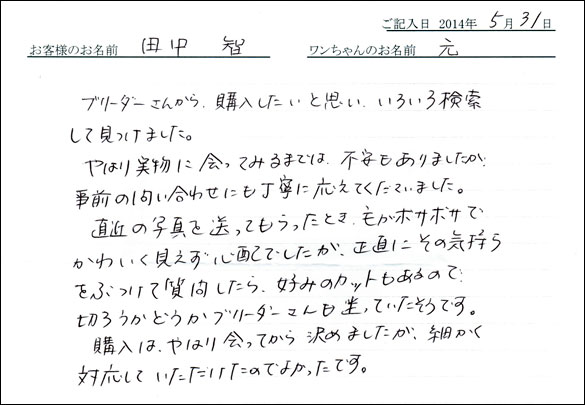 ご記入日 2014年 5月 31日
お客様のお名前 田中 智 ワンちゃんのお名前 元
ブリーダーさんから、購入したいと思い、いろいろ検索
して見つけました。
やはり実物に会ってみるまでは、不安もありましたが、
事前の問い合わせにも丁寧に応えてくださいました。
直近の写真を送ってもらったとき、毛がボサボサで
かわいく見えず心配でしたが、正直にその気持ち
をぶつけて質問したら、好みのカットもあるので、
切ろうかどうかブリーダーさんも迷っていたそうです。
購入は、やはり会ってから決めましたが、細かく
対応していただけたのでよかったです。